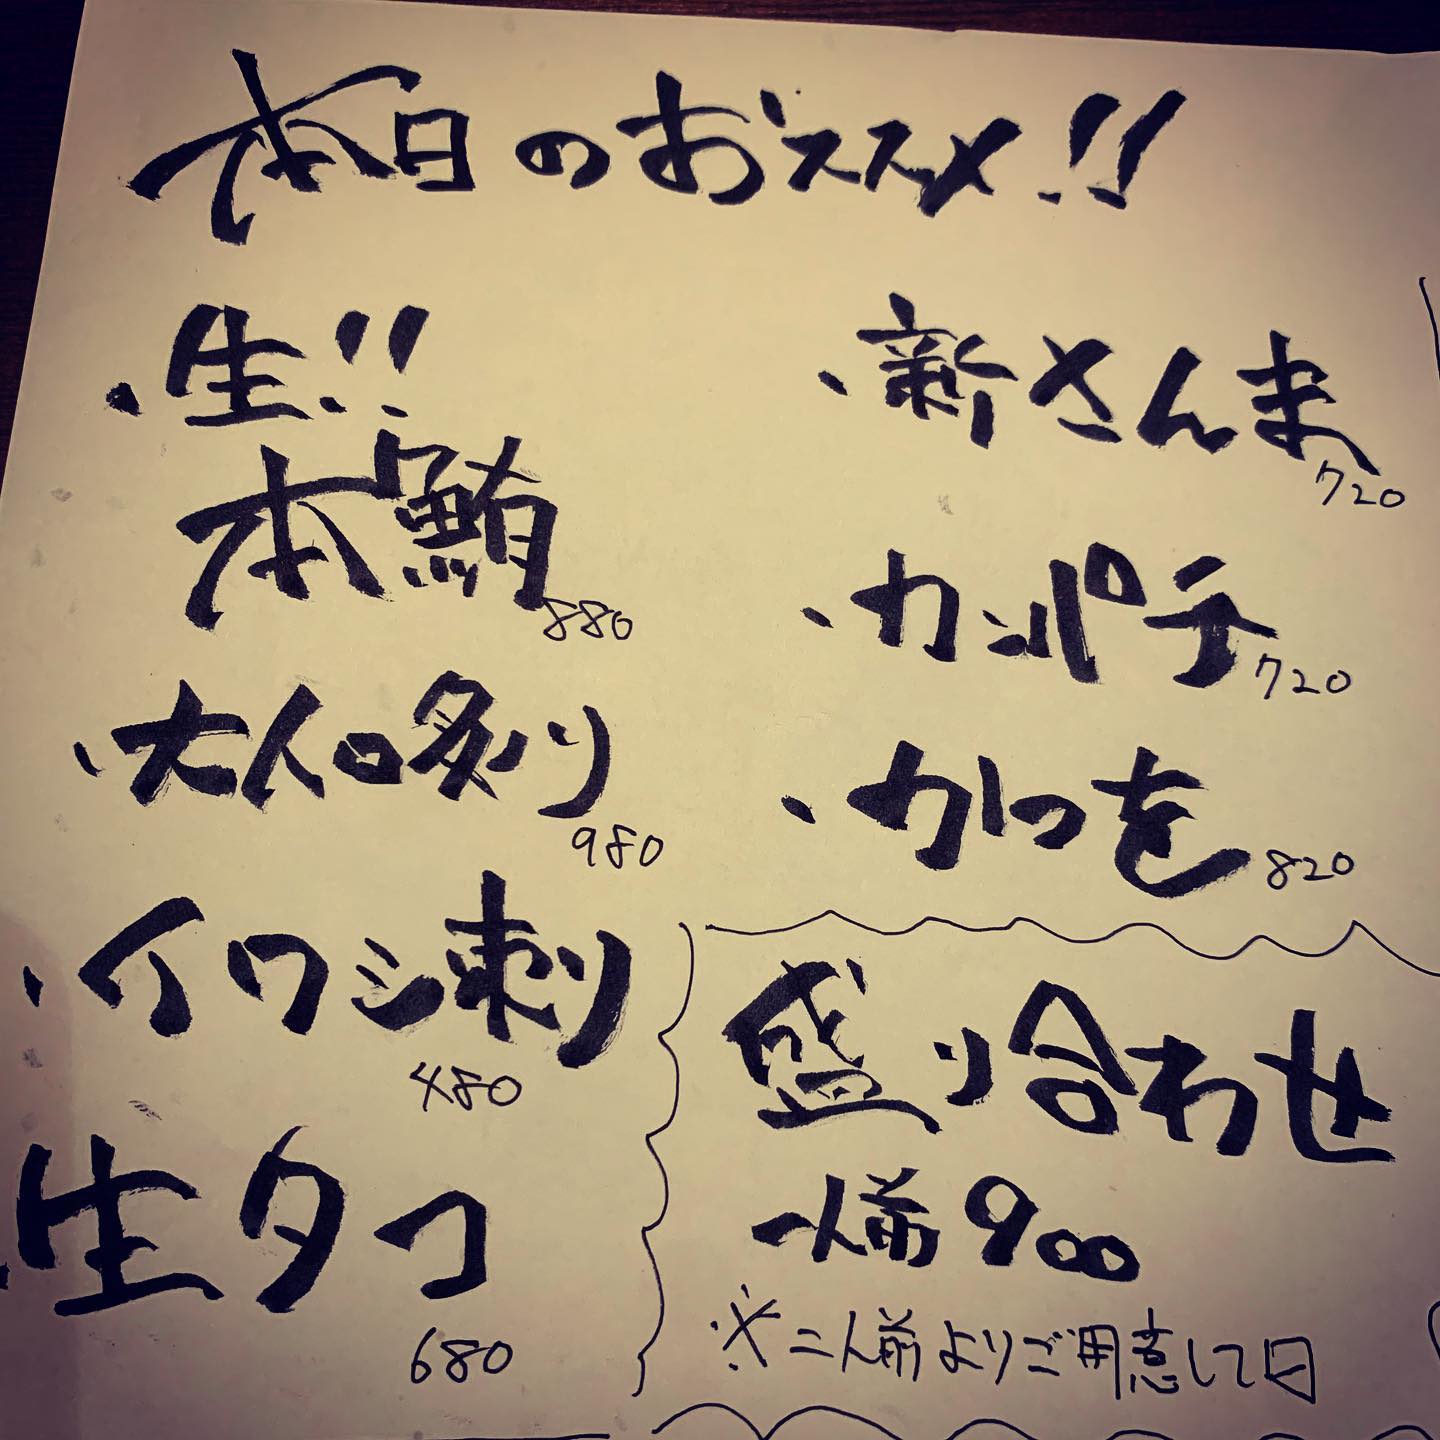 本日のおススメ!!
・生!!
本鮪
880
・大トロ炙り
980
・イワシ刺
480
・生タコ
680
・新さんま
720
・カンパチ
720
・かつを
820
盛り合わせ
一人前900
※二人前よりご用意して日